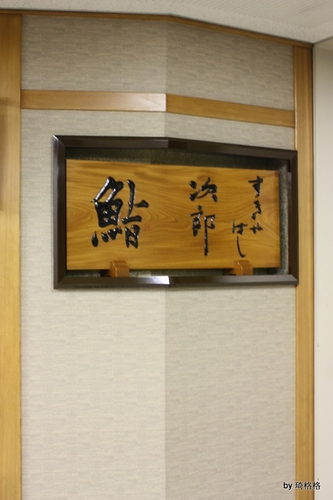 すきやばし
次郎
鮨
by 琦格格